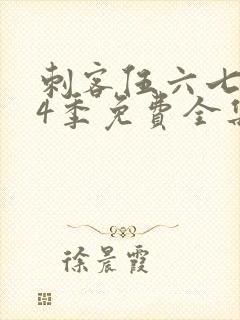 刺客伍六七
4季免費全集
徐晨霞